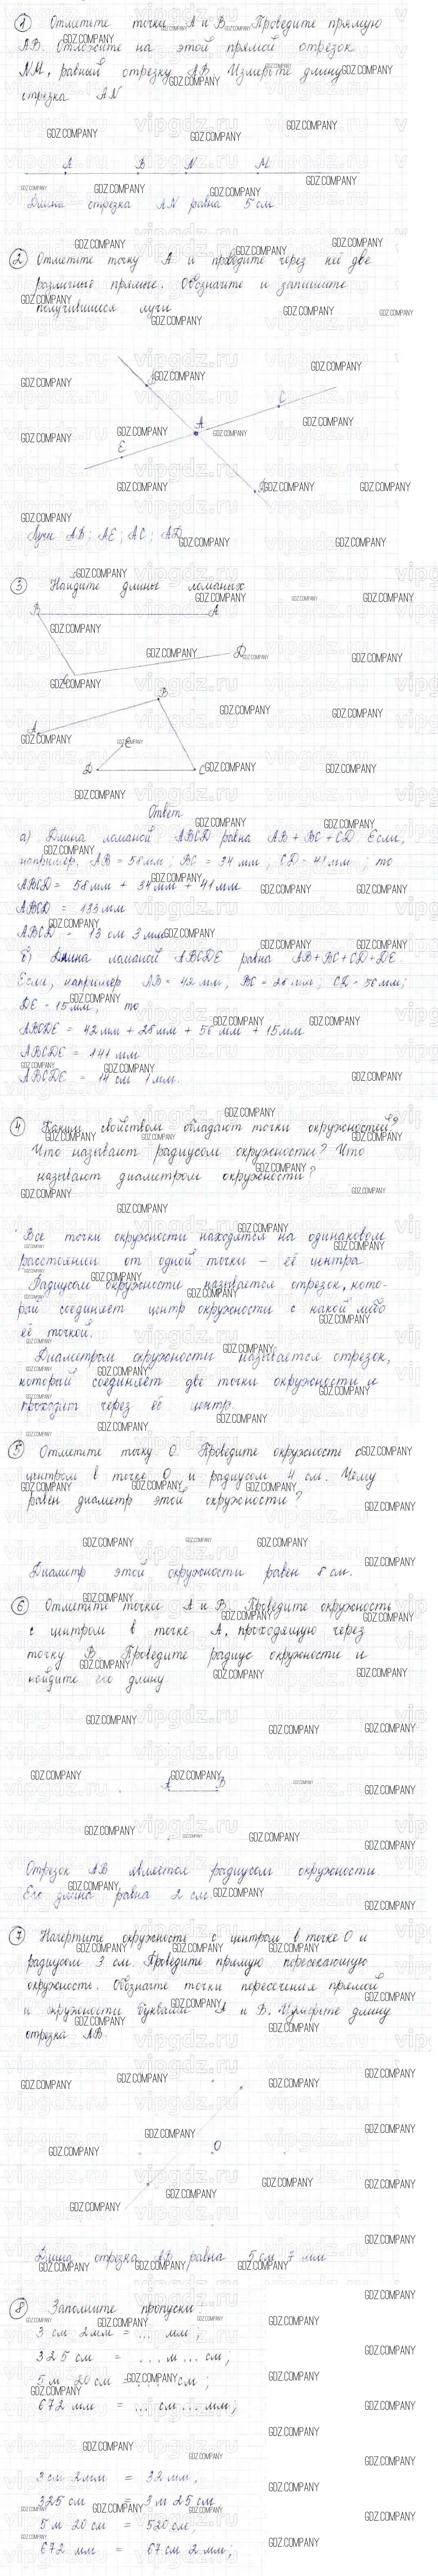 ① Отметьте точки А и В. Проведите прямую
АВ. Отложите на этой прямой отрезок
NM, равный отрезку АВ. Измерьте длину
отрезка AN
A B N M
Длина отрезка AN равна 5 см
② Отметьте точку А и проведите через неё две
различные прямые. Обозначте и запишите
получившиеся лучи
C
A
E
Лучи АВ; АЕ; АС; АD
③ Найдите длины ломаных
B A
D
C
B
A
E
D C
Ответ
а) Длина ломаной ABCD равна AB + BC + CD Если,
например, AB = 58 мм; BC = 34 мм; CD = 41 мм; то
ABCD = 58 мм + 34 мм + 41 мм
ABCD = 133 мм
ABCD = 13 см 3 мм
б) Длина ломаной ABCDE равна AB+BC+CD+DE
Если, например AB = 42 мм, BC = 28 мм; CD = 56 мм;
DE = 15 мм, то
ABCDE = 42 мм + 28 мм + 56 мм + 15 мм
ABCDE = 141 мм
ABCDE = 14 см 1 мм.
④ Каким свойством обладают точки окружностей?
Что называют радиусом окружности? Что
называют диаметром окружности?
Все точки окружности находятся на одинаковом
расстоянии от одной точки – её центра
Радиусом окружности называется отрезок, кото-
рый соединяет центр окружности с какой либо
её точкой.
Диаметром окружности называется отрезок,
который соединяет две точки окружности и
проходит через её центр.
⑤ Отметьте точку О. Проведите окружность с
центром в точке О и радиусом 4 см. Чему
равен диаметр этой окружности?
Диаметр этой окружности равен 8 см.
⑥ Отметьте точки А и В. Проведите окружность
с центром в точке А, проходящую через
точку В. Проведите радиус окружности и
найдите его длину
А В
Отрезок АВ является радиусом окружности.
Его длина равна 2 см.
⑦ Начертите окружность с центром в точке О и
радиусом 3 см. Проведите прямую пересекающую
окружность. Обозначте точки пересечения прямой
и окружности буквами А и В. Измерьте длину
отрезка АВ
О
Длина отрезка АВ равна 5 см 7 мм
⑧ Заполните пропуски
3 см 2мм = ... мм;
325 см = ... м ... см;
5 м 20 см = ... см;
672 мм = ... см ... мм;
3 см 2 мм = 32 мм,
325 см = 3 м 25 см
5 м 20 см = 520 см,
672 мм = 67 см 2 мм;